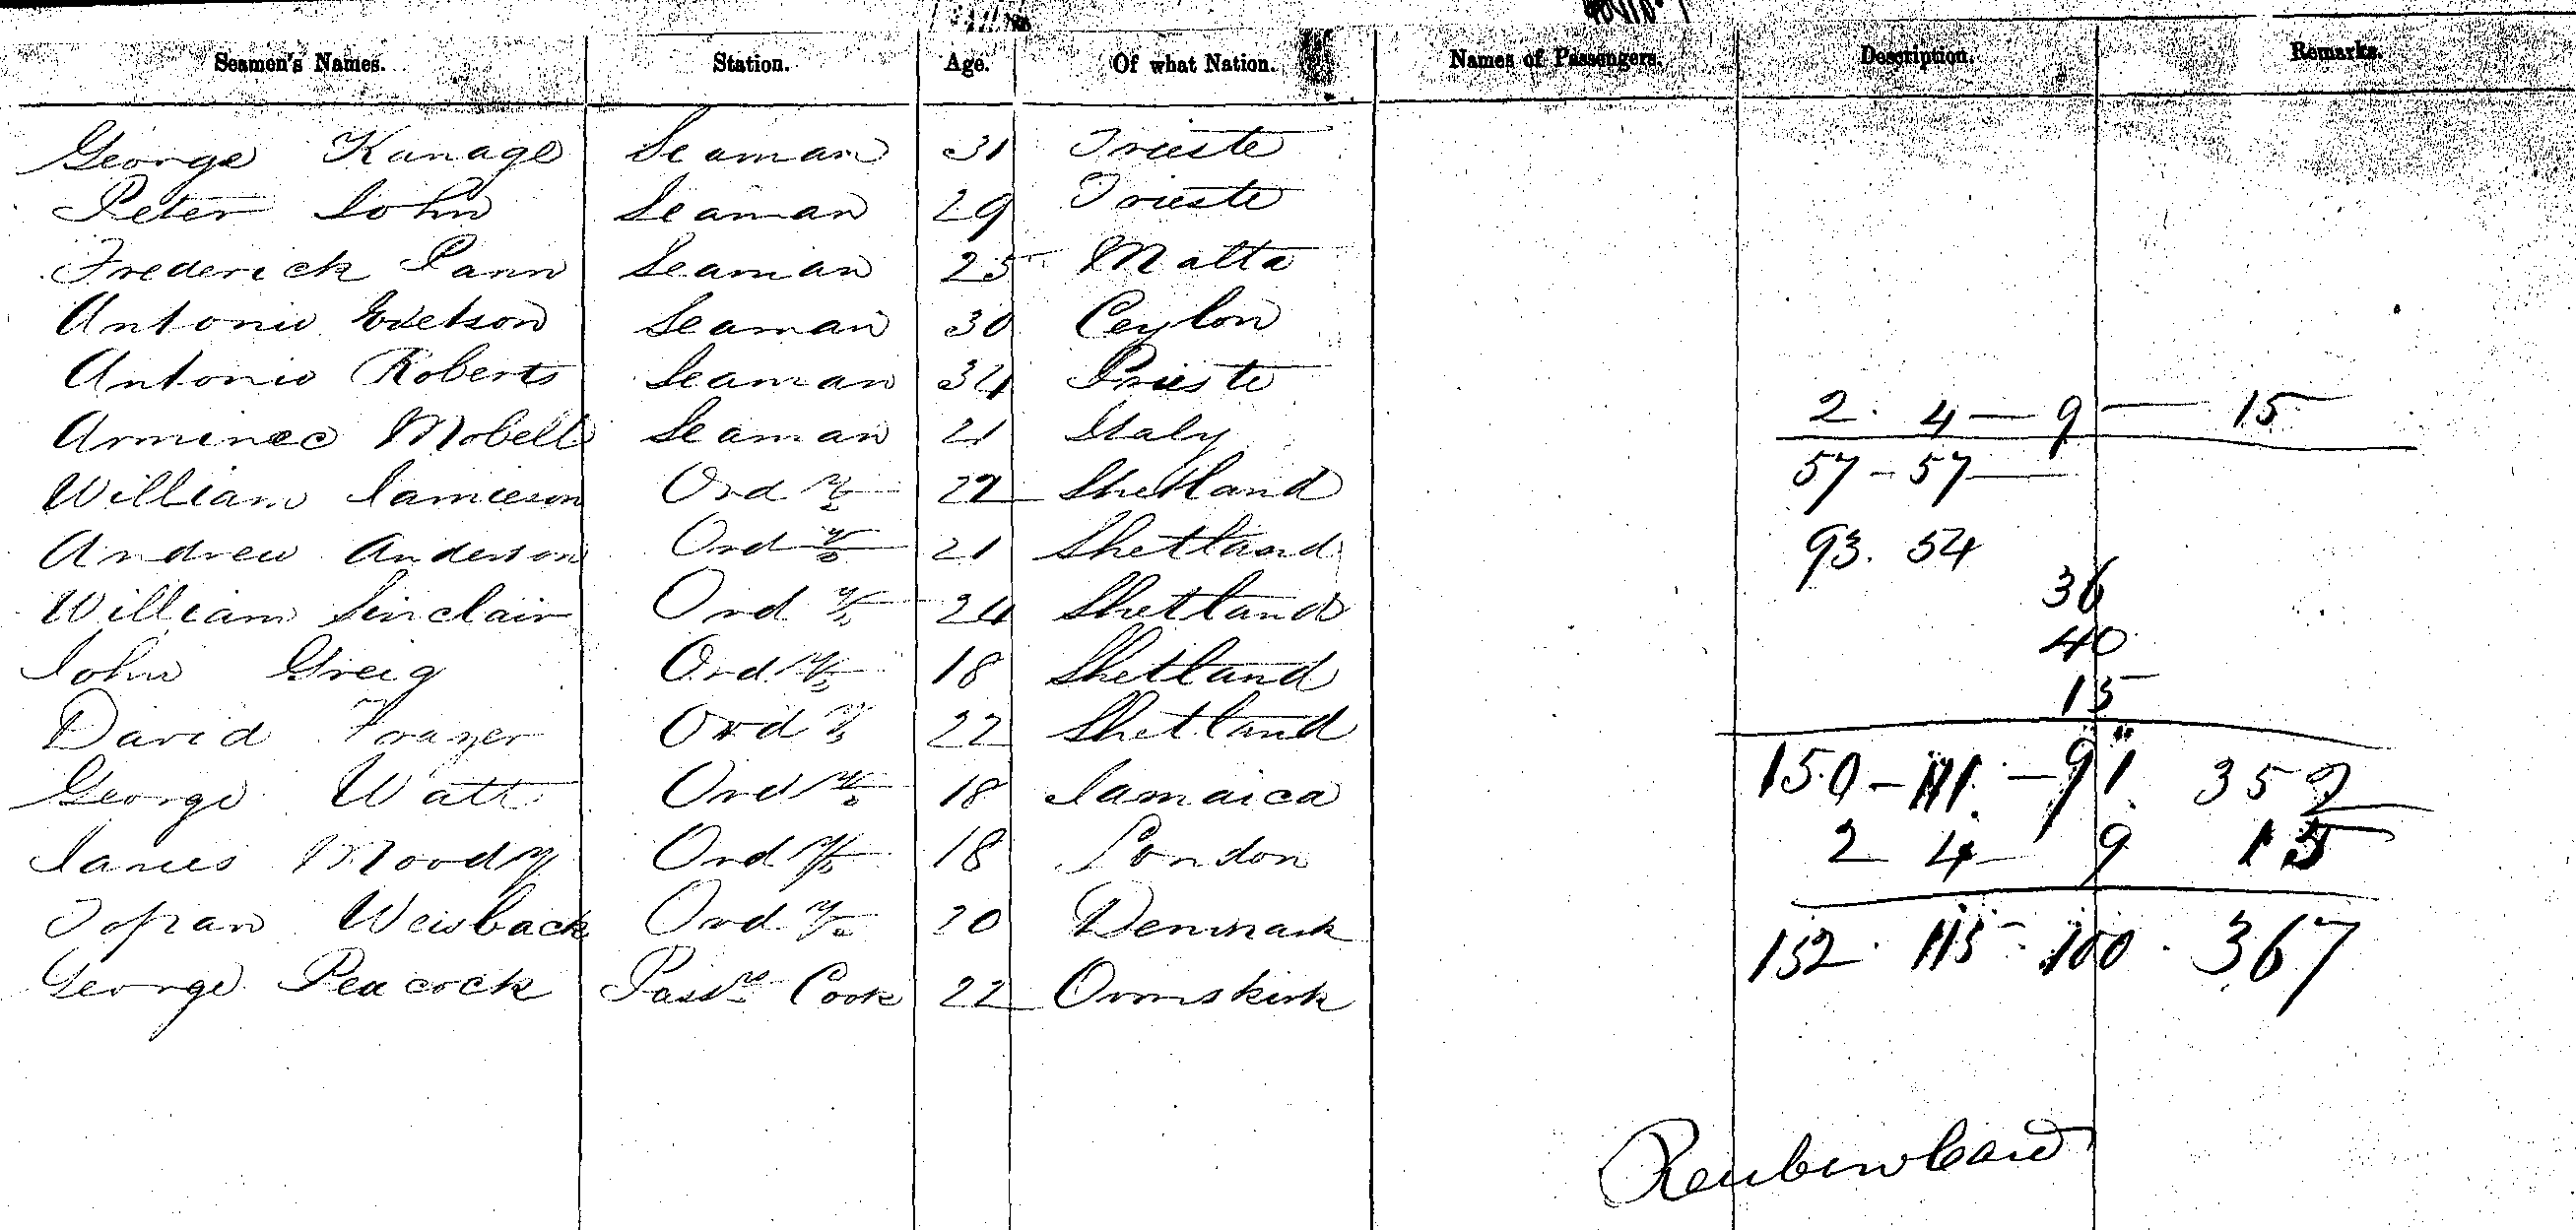 Seamen's Names. Station. Age. Of what Nation. Names of Passengers. Description. Remarks.
George Kanage Seaman 31 Trieste
Peter John Seaman 29 Trieste
Frederick Pann Seaman 25 Malta
Antonio Seaman 30 Ceylon
Antonio Roberts Seaman 34 Trieste
Mobell Seaman 21 Italy 2. 4 — 9 — 15
William Jamieson Ord 22 Shetland 57 - 57
Andrew Anderson Ord 21 Shetland 93. 54
36
William Sinclair Ord 24 Shetland
40
John Greig Ord 18 Shetland
15
David Frazer Ord 22 Shetland
George Watt Ord 18 Jamaica 150 - 111 - 91 352
James Moody Ord 18 London 2 4 9 15
Weisback Ord 20 Denmark 152 . 115 . 100 . 367
George Peacock Passr Cook 22 Ormskirk